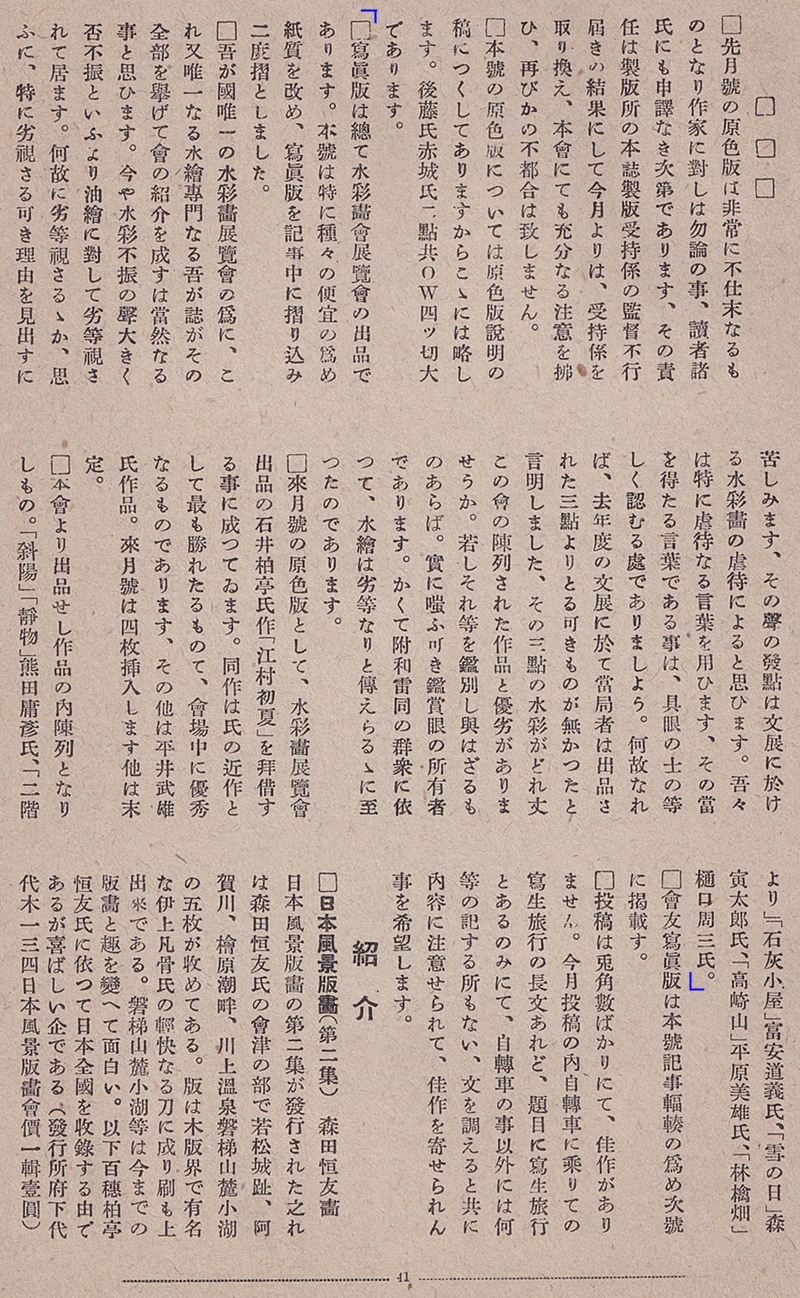 □□□
□先月號の原色版は非常に不仕末なるも
のとなり作家に對しは勿論の事、讀者諸
氏にも申譯なき次第であります、その責
任は製版所の本誌製版受持係の監督不行
屆きの結果にして今月よりは、受持係を
取り換え、本會にても充分なる注意を拂
ひ、再びかの不都合は致しません。
□本號の原色版については原色版説明の
稿につくしてありますからこゝには略し
ます。後藤氏赤城氏二點共OW四ッ切大
であります。
□寫眞版は總て水彩畫會展覽會の出品で
あります。本號は特に種々の便宜の爲め
紙質を改め、寫眞版を記事中に摺り込み
二度摺としました。
□吾が國唯一の水彩畫展覽會の爲に、こ
れ又唯一なる水繪專門なる吾が誌がその
全部を擧げて會の紹介を成すは當然なる
事と思ひます。今や水彩不振の聲大きく
否不振といふより油繪に對して劣等視さ
れて居ます。何故に劣等視さるゝか、思
ふに、特に劣視さる可き理由を見出すに
苦しみます、その聲の發點は文展に於け
る水彩畫の虐待によると思ひます。吾々
は特に虐待なる言葉を用ひます、その當
を得たる言葉である事は、具眼の士の等
しく認むる處でありましよう。何故なれ
ば、去年度の文展に於て當局者は出品さ
れた三點よりとる可きものが無かつたと
言明しました、その三點の水彩がどれ丈
この會の陳列された作品と優劣がありま
せうか。若しそれ等を鑑別し與はざるも
のあらば。實に嗤ふ可き鑑賞眼の所有者
であります。かくて附和雷同の群衆に依
つて、水繪は劣等なりと傳えらるゝに至
つたのであります。
□來月號の原色版として、水彩畫展覽會
出品の石井柏亭氏作「江村初夏」を拜借す
る事に成つてゐます。同作は氏の近作と
して最も勝れたるものて、會場中に優秀
なるものであります、その他は平井武雄
氏作品。來月號は四枚挿入します他は末
定。
□本會より出品せし作品の内陳列となり
しもの。「斜陽」「靜物」熊田庸彥氏、「二階
より」「石灰小屋」富安道義氏、「雪の日」森
寅太郎氏、「高崎山」平原美雄氏、「林檎畑」
樋口周三氏。
□會友寫眞版は本號記事輻輳の爲め次號
に揭載す。
□投稿は兎角數ばかりにて、佳作があり
ません。今月投稿の内自轉車に乘りての
寫生旅行の長文あれど、題目に寫生旅行
とあるのみにて、自轉車の事以外には何
等の記する所もない、文を調えると共に
内容に注意せられて、佳作を寄せられん
事を希望します。
紹介
□日本風景版畫(第二集) 森田恒友畫
日本風景版畫の第二集が發行された之れ
は森田恒友氏の會津の部で若松城趾、阿
賀川、檜原湖畔、川上溫泉磐梯山麓小湖
の五枚が收めてある。版は木版界で有名
な伊上凡骨氏の輕快なる刀に成り刷も上
出來である。磐梯山麓小湖等は今までの
版畫と趣を變へて面白い。以下百穗柏亭
恒友氏に依つて日本全國を收錄する由で
あるが喜ばしい企である(發行所府下代
代木一三四日本風景版畫會價一輯壹圓)
41